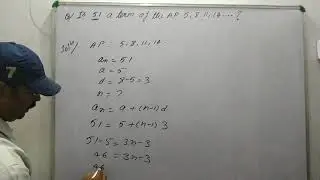 Q) Is 51 a term of the AP 5, 8, 11, 14 ....?
Solⁿ/ AP : 5, 8, 11, 14
aₙ = 51
a = 5
d = 8-5 = 3
n = ?
aₙ = a + (n-1) d
51 = 5 + (n-1) 3
51-5 = 3n-3
46 = 3n-3
46